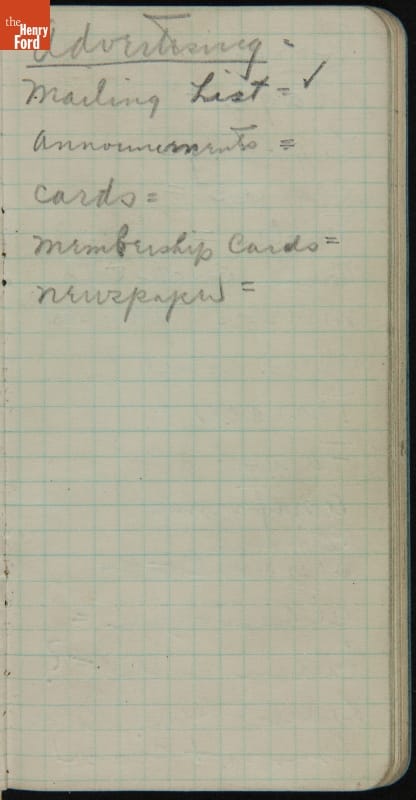 the
Henry
Ford
Advertising -
Mailing List = ✓
Announcements =
Cards =
Membership Cards =
Newspaper =